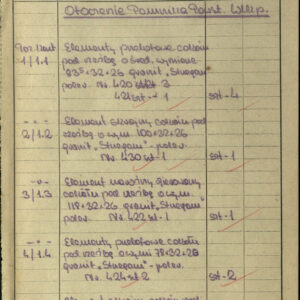 Otoczenie Pomnika Powst. Wlkp.
Elementy prostokątne cokołu
1/1.1 pod rzeźbę o śred. wymiarze
83×32×26 granit „Strzegom"
poler. Nr. 420 szt 3
421 szt - 1 szt - 4
- „ - Element skrajny cokołu pod
2/1.2. rzeźbę o wym. 100×32×26
granit „Strzegom" - poler.
Nr. 430 szt - 1 szt - 1
- „ - Element narożny
3/1.3 cokołu pod rzeźbę o wym.
118×32×26 granit „Strzegom"
poler. Nr. 422 szt - 1 szt - 1
- „ - Elementy prostokątne cokołu
4/1.4 pod rzeźbę o wym 78×32×26
granit „Strzegom" - poler.
Nr. 424 szt 2 szt - 2